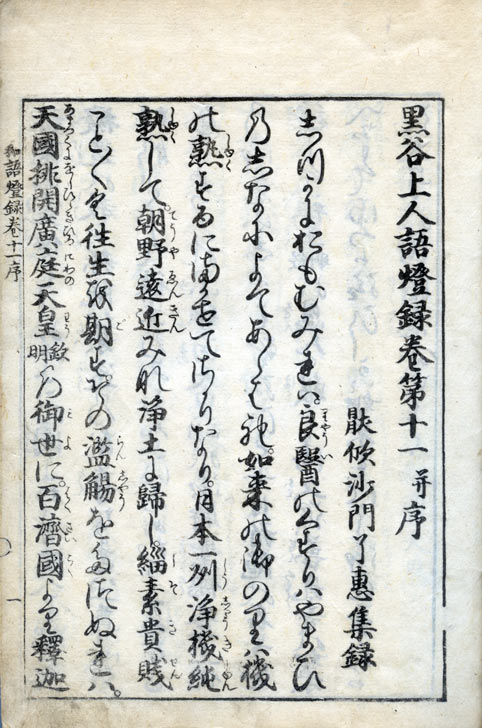 黒谷上人語燈録卷第十一 并序
厭欣沙門了惠集録
しつかにおもむみれは。良醫のくすりはやまひ
のしなによてあらはれ。如来の御のりは機
の熟するにまかせてさかりなり。日本一州浄機純
熟して。朝野遠近みな浄土に歸し。緇素貴賤
こと〱く往生を期す。その濫觴をたつぬれは。
天國排開廣庭天皇欽明の御世に。百濟國より釋迦
和語燈録卷十一序
一